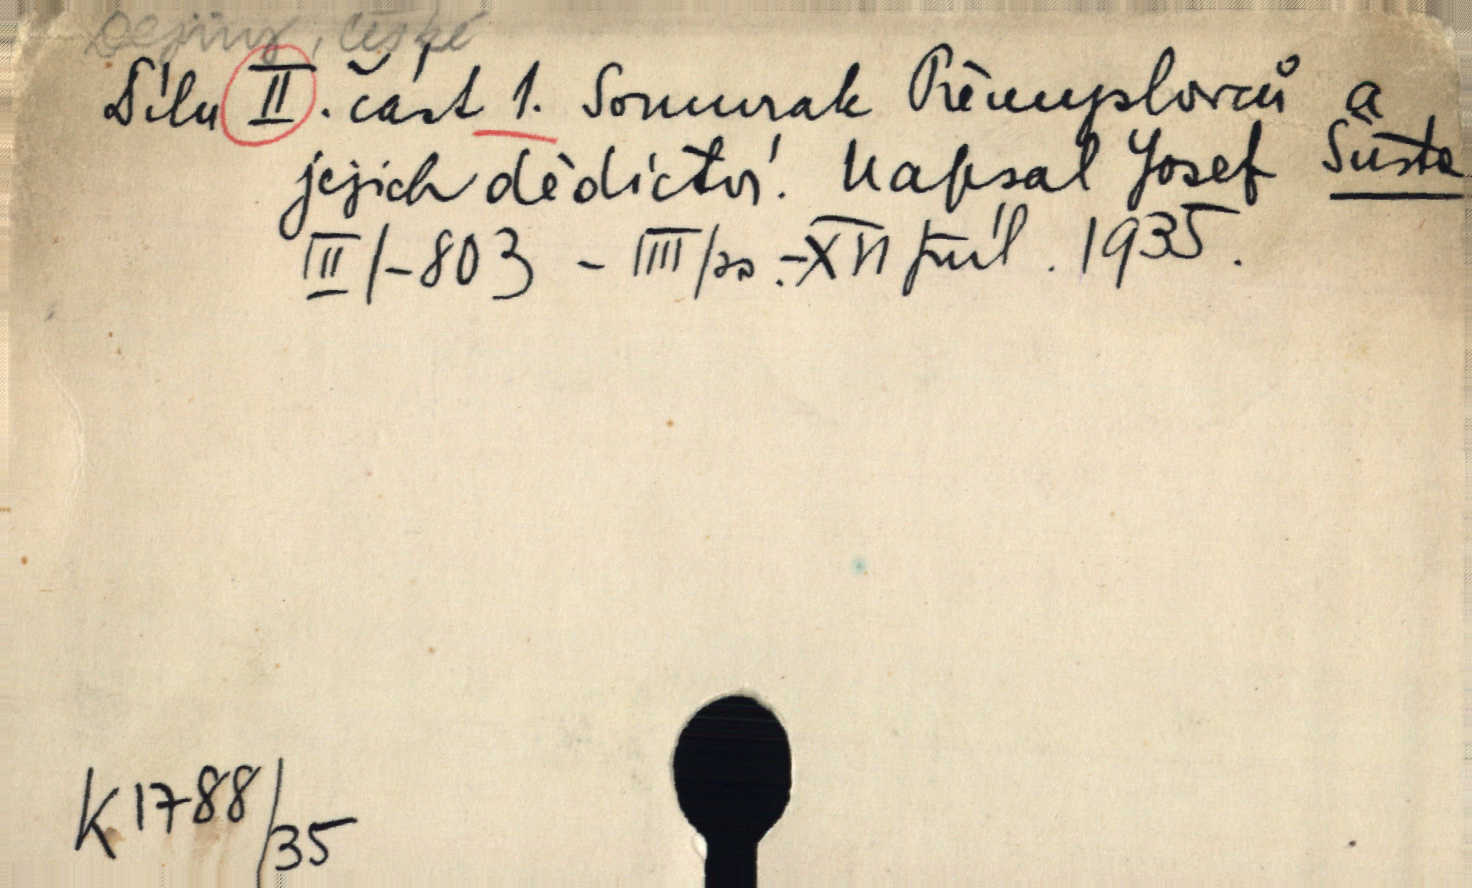 Dějiny, české
Dílu II. část 1. Soumrak Přemyslovců a
jejich dědictví. Napsal Josef Šusta
III/-803 - IIII/ss.-XVI příl. 1935.
K 1788/35